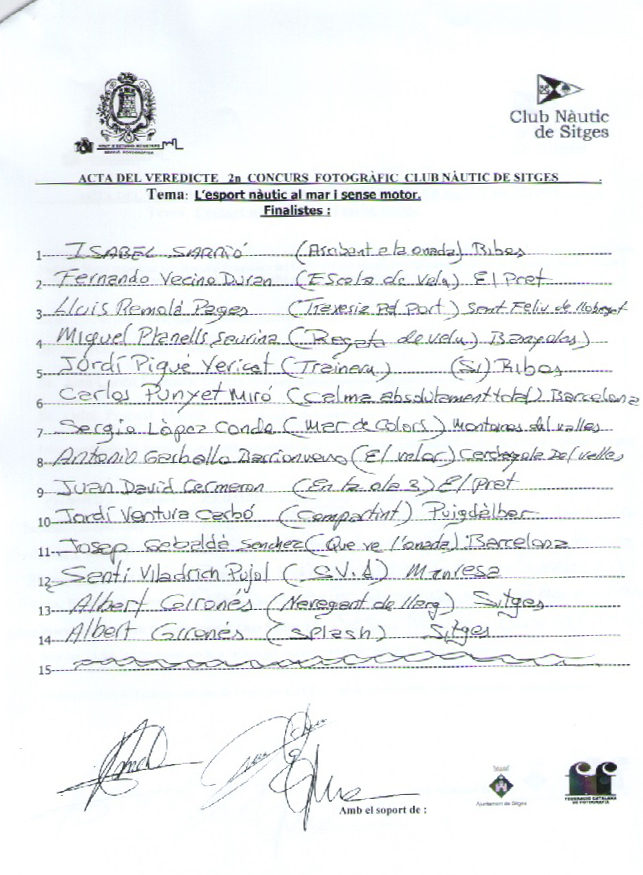 GRUP D'ESTUDIS SITGETANS
SECCIÓ FOTOGRÀFICA
Club Nàutic
de Sitges
ACTA DEL VEREDICTE 2n CONCURS FOTOGRÀFIC CLUB NÀUTIC DE SITGES
Tema: L'esport nàutic al mar i sense motor.
Finalistes :
1 ISABEL SARRIÓ (Arribant a la onada) Ribes
2 Fernando Vecino Duran (EScola de Vela) El Prat
3 Lluis Remolá Pages (Travesia pel Port) Sant Feliu de llobregat
4 Miguel Planells Saurina (Regata de vela) Banyoles)
5 Jordi Piqué Yericat (Trainera) (Si) Ribes
6 Carlos Punyet Miró (Calma absolutament total) Barcelona
7 Sergio López Conde (Mar de Colors) Montornes del valles
8 Antonio Carballo Barrionuevo (El velar) Cerdanyola Del valles
9 Juan David Cermeron (En la ola 3) El Prat
10 Jordi Ventura Carbó (Compartint) Puigdàlber
11 Josep Gabaldà Sanchez (Que ve l'onada) Barcelona
12 Santi Viladrich Pujol (S.V.1) Manresa
13 Albert Gironés (Navegant de llarg) Sitges
14 Albert Gironés (Splash) Sitges
15
Amb el soport de :
Ajuntament de Sitges
FEDERACIÓ CATALANA
DE FOTOGRAFIA